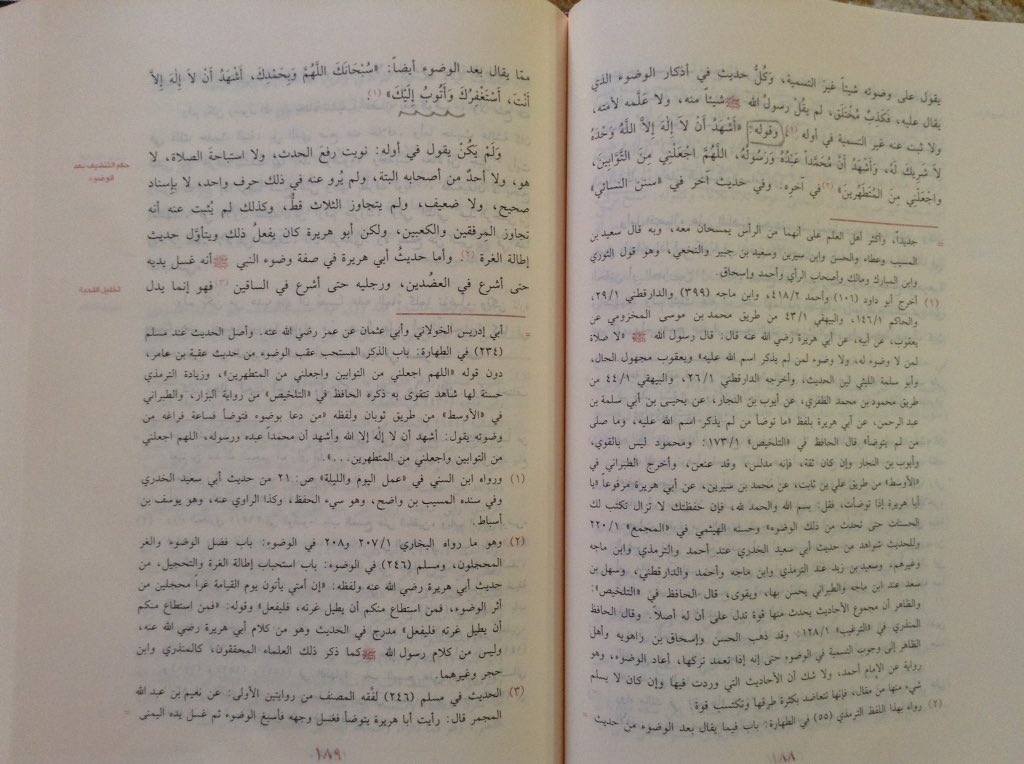 يقول على وضوئه شيئاً غيرَ التسمية، وكُلُّ حديث في أذكار الوضوء الذي
يقال عليه، فكَذِبٌ مُخْتَلَق، لم يقُلْ رسولُ الله ﷺ شيئاً منه، ولا علَّمه لأمته،
ولا ثبت عنه غير التسمية في أوله (١) وقوله: «أَشْهَدُ أَنْ لاَ إِلٰهَ إِلاَّ اللَّهُ وَحْدَهُ
لاَ شَرِيكَ لَهُ، وَأَشْهَدُ أَنْ مُحَمَّداً عَبْدُهُ وَرَسُولُهُ، اللَّهُمَّ اجْعَلْنِي مِنَ التَّوَّابِينَ،
وَاجْعَلْنِي مِنَ المُتَطَهِّرِينَ» (٢) في آخره. وفي حديث آخر في «سنن النسائي»
= جديداً، وأكثر أهل العلم على أنهما من الرأس يمسحان معه، وبه قال سعيد بن
المسيب وعطاء والحسن وابن سيرين وسعيد بن جبير والنخعي، وهو قول الثوري
وابن المبارك ومالك وأصحاب الرأي وأحمد وإسحاق.
(١) أخرج أبو داود (١٠١) وأحمد ٤١٨/٢، وابن ماجه (٣٩٩) والدارقطني ٢٩/١،
والحاكم ١٤٦/١، والبيهقي ٤٣/١ من طريق محمد بن موسى المخزومي عن
يعقوب، عن أبيه، عن أبي هريرة رضي الله عنه قال: قال رسول الله ﷺ «لا صلاة
لمن لا وضوء له، ولا وضوء لمن لم يذكر اسم الله عليه» ويعقوب مجهول الحال،
وأبو سلمة الليثي لين الحديث، وأخرجه الدارقطني ٢٦/١، والبيهقي ٤٤/١ من
طريق محمود بن محمد الظفري، عن أيوب بن النجار، عن يحيى بن أبي سلمة بن
عبد الرحمن، عن أبي هريرة بلفظ «ما توضأ من لم يذكر اسم الله عليه، وما صلى
من لم يتوضأ» قال الحافظ في «التلخيص» ١٧٣/١: ومحمود ليس بالقوي،
وأيوب بن النجار وإن كان ثقة، فإنه مدلس، وقد عنعن، وأخرج الطبراني في
«الأوسط» من طريق علي بن ثابت، عن محمد بن سيرين، عن أبي هريرة مرفوعاً «يا
أبا هريرة إذا توضأت، فقل: بسم الله والحمد لله، فإن حفظتك لا تزال تكتب لك
الحسنات حتى تحدث من ذلك الوضوء» وحسنه الهيثمي في «المجمع» ٢٢٠/١
وللحديث شواهد من حديث أبي سعيد الخدري عند أحمد والترمذي وابن ماجه
وغيرهم. وسعيد بن زيد عند الترمذي وابن ماجه وأحمد والدارقطني، وسهل بن
سعد عند ابن ماجه والطبراني يحسن بها، ويقوى، قال الحافظ في «التلخيص»:
والظاهر أن مجموع الأحاديث يحدث منها قوة تدل على أن له أصلاً. وقال الحافظ
المنذري في «الترغيب» ١٢٨/١: وقد ذهب الحسن وإسحاق بن راهويه وأهل
الظاهر إلى وجوب التسمية في الوضوء حتى إنه إذا تعمد تركها، أعاد الوضوء، وهو
رواية عن الإمام أحمد، ولا شك أن الأحاديث التي وردت فيها وإن كان لا يسلم
شيء منها من مقال، فإنها تتعاضد بكثرة طرقها وتكتسب قوة.
(٢) رواه بهذا اللفظ الترمذي (٥٥) في الطهارة: باب فيما يقال بعد الوضوء من حديث =
١٨٨
ممّا يقال بعد الوضوء أيضاً: «سُبْحَانَكَ اللَّهُمَّ وَبِحَمْدِكَ، أَشْهَدُ أَنْ لاَ إِلٰهَ إِلاَّ
أَنْتَ، أَسْتَغْفِرُكَ وَأَتُوبُ إِلَيْكَ» (١)
وَلَمْ يَكُنْ يقول في أوله: نويت رفعَ الحدث، ولا استباحةَ الصلاة، لا
حكم التنشيف بعد الوضوء
هو، ولا أحدٌ من أصحابه البتة، ولم يُرو عنه في ذلك حرف واحد، لا بإسناد
صحيح، ولا ضعيف، ولم يتجاوز الثلاث قطُّ، وكذلك لم يَثبت عنه أنه
تجاوز المِرفقين والكعبين، ولكن أبو هريرة كان يفعلُ ذلك ويتأوَّل حديث
إطالة الغرة (٢) وأما حديثُ أبي هريرة في صفة وضوء النبي ﷺ أنه غسل يديه
حتى أشرع في العضُدين، ورجليه حتى أشرع في الساقين (٣) فهو إنما يدل
تخليل اللحية
= أبي إدريس الخولاني وأبي عثمان عن عمر رضي الله عنه. وأصل الحديث عند مسلم
(٢٣٤) في الطهارة: باب الذكر المستحب عقب الوضوء من حديث عقبة بن عامر،
دون قوله «اللهم اجعلني من التوابين واجعلني من المتطهرين»، وزيادة الترمذي
حسنة لها شاهد تتقوى به ذكره الحافظ في «التلخيص» من رواية البزار، والطبراني
في «الأوسط» من طريق ثوبان ولفظه «من دعا بوضوء فتوضأ فساعة فراغه من
وضوئه يقول: أشهد أن لا إلٰه إلا الله وأشهد أن محمداً عبده ورسوله، اللهم اجعلني
من التوابين واجعلني من المتطهرين...».
(١) ورواه ابن السني في «عمل اليوم والليلة» ص: ٢١ من حديث أبي سعيد الخدري
وفي سنده المسيب بن واضح، وهو سيء الحفظ، وكذا الراوي عنه، وهو يوسف بن
أسباط.
(٢) وهو ما رواه البخاري ٢٠٧/١ و٢٠٨ في الوضوء: باب فضل الوضوء والغر
المحجلون، ومسلم (٢٤٦) في الوضوء: باب استحباب إطالة الغرة والتحجيل، من
حديث أبي هريرة رضي الله عنه ولفظه: «إن أمتي يأتون يوم القيامة غراً محجلين من
أثر الوضوء، فمن استطاع منكم أن يطيل غرته، فليفعل» وقوله: «فمن استطاع منكم
أن يطيل غرته فليفعل» مدرج في الحديث وهو من كلام أبي هريرة رضي الله عنه،
وليس من كلام رسول الله ﷺ كما ذكر ذلك العلماء المحققون، كالمنذري وابن
حجر وغيرهما.
(٣) الحديث في مسلم (٢٤٦) لفّقه المصنف من روايتين الأولى: عن نعيم بن عبد الله
المجمر قال: رأيت أبا هريرة يتوضأ فغسل وجهه فأسبغ الوضوء ثم غسل يده اليمنى =
١٨٩